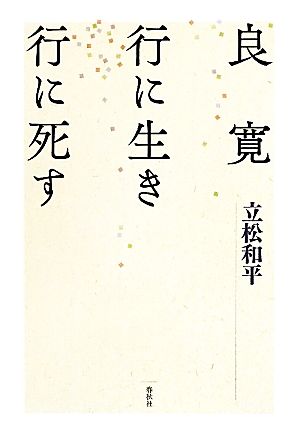 良寛
行に生き
行に死す
立松和平
春秋社